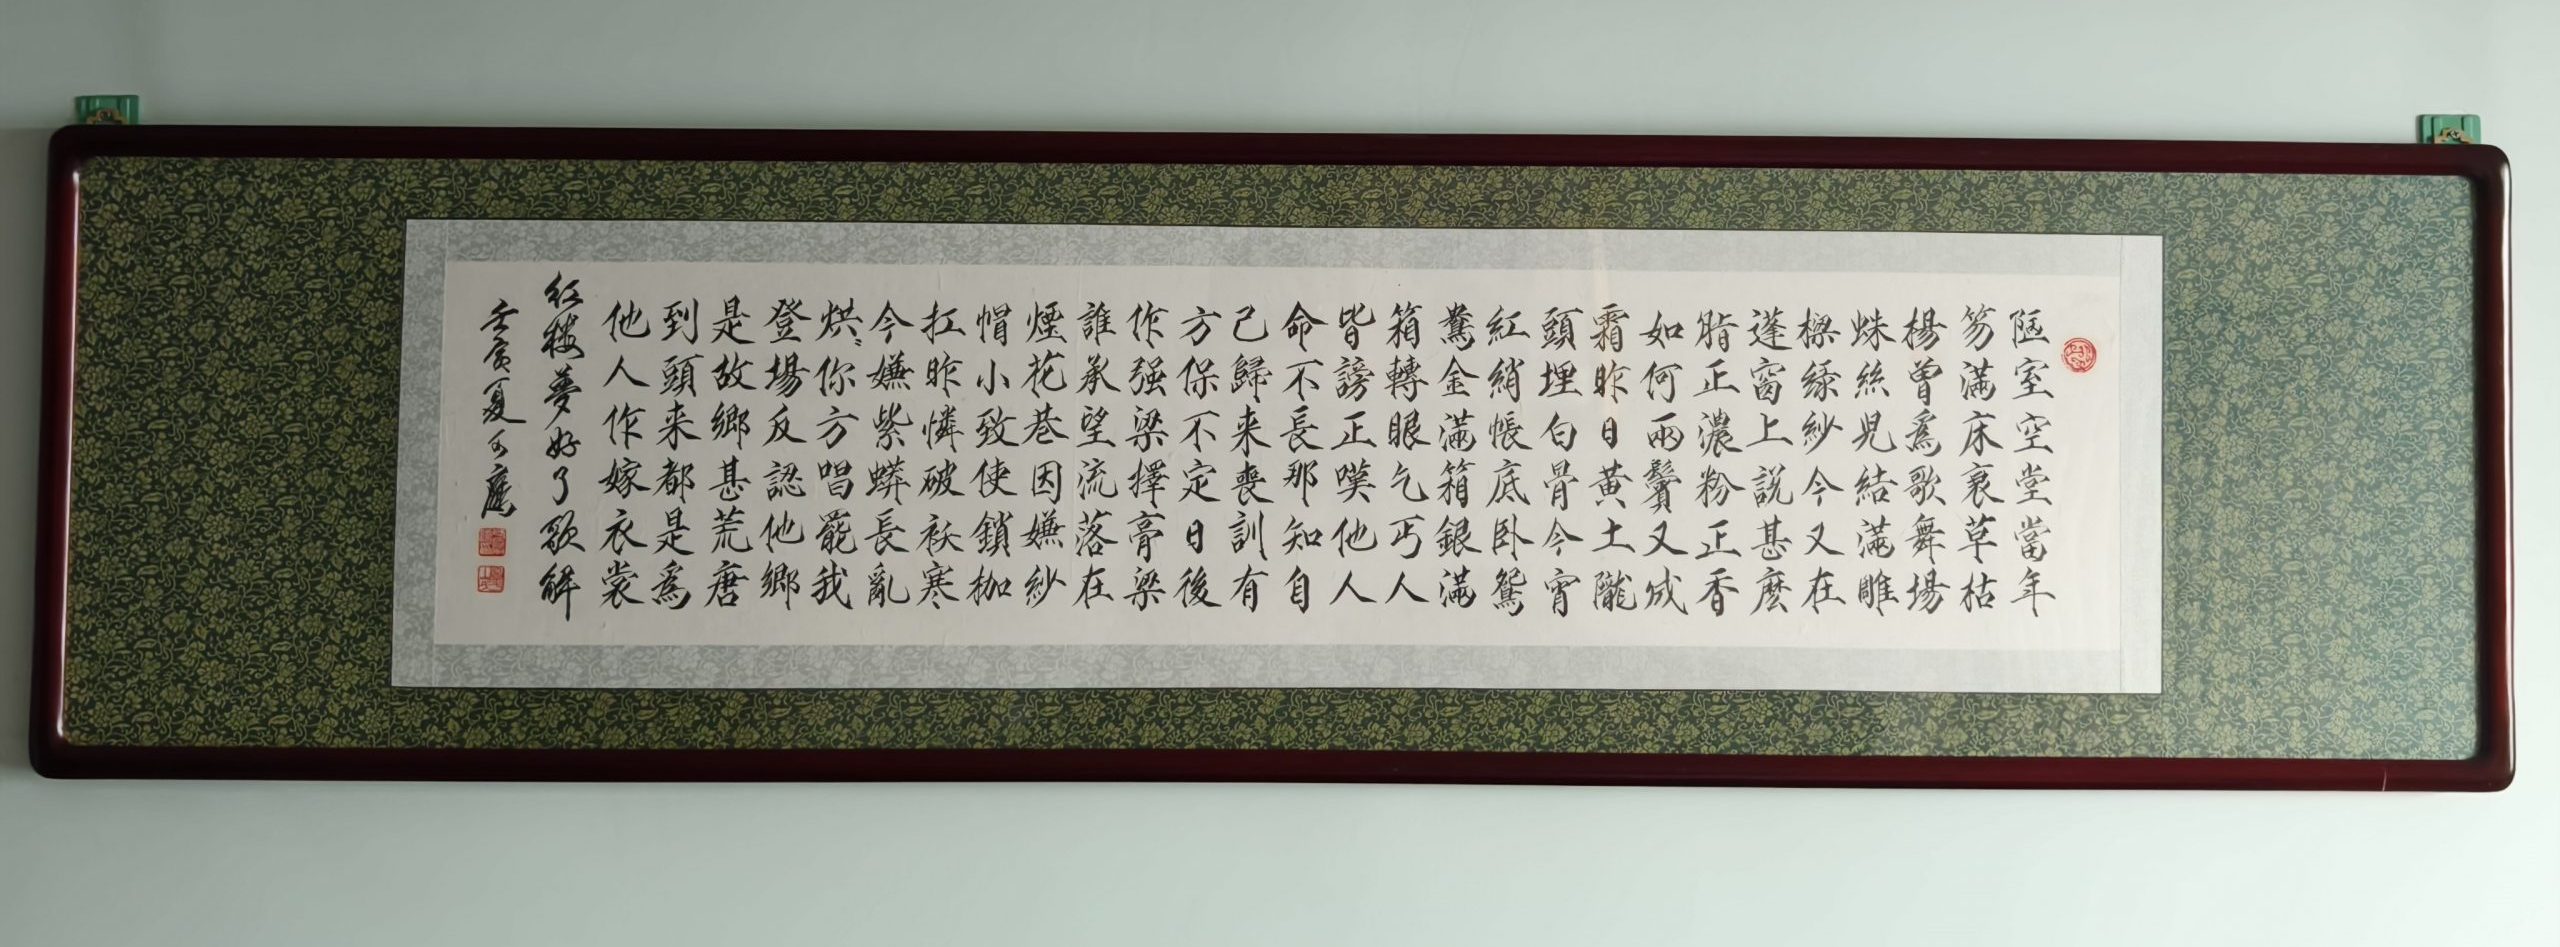 陋室空堂當年
笏滿床衰草枯
楊曾爲歌舞場
蛛絲兒結滿雕
樑緑紗今又在
蓬窗上説甚麼
脂正濃粉正香
如何兩鬢又成
霜昨日黄土隴
頭埋白骨今宵
紅綃帳底卧鴛
鴦金滿箱銀滿
箱轉眼乞丐人
皆謗正嘆他人
命不長那知自
己歸来喪訓有
方保不定日後
作强梁擇膏梁
誰承望流落在
煙花巷因嫌紗
帽小致使鎖枷
扛昨憐破袄寒
今嫌紫蟒長亂
烘〻你方唱罷我
登場反認他鄉
是故鄉甚荒唐
到頭来都是爲
他人作嫁衣裳
紅楼夢好了歌解
壬寅夏